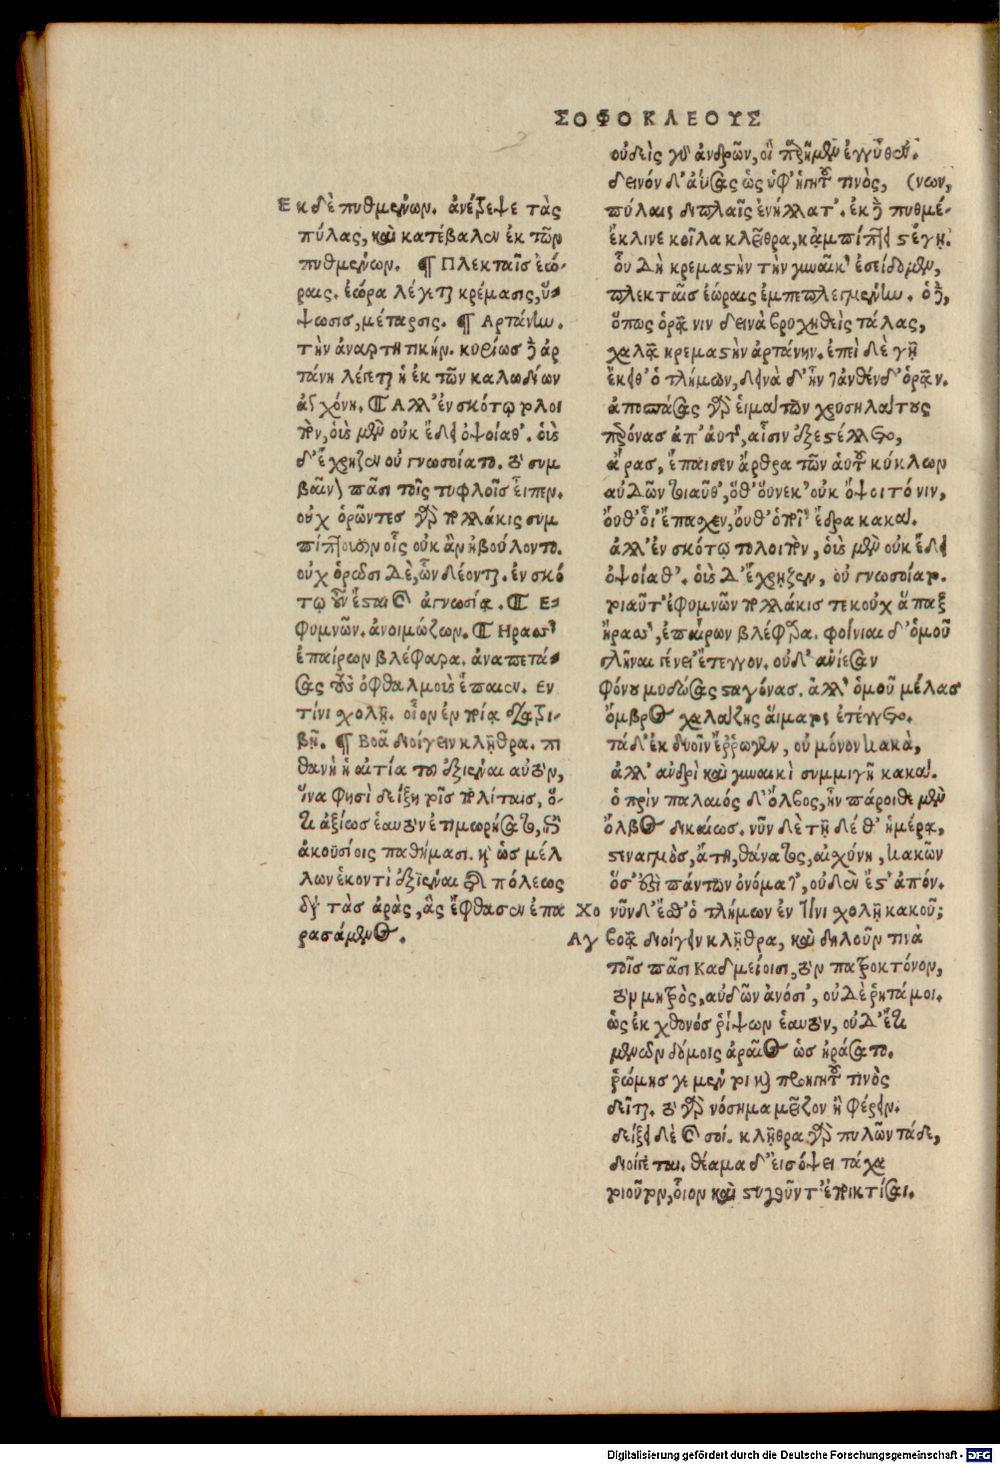 ΣΟΦΟΚΛΕΟΥΣ
Εκ δὲ πυθμένων. ἀνέῤῥεψε τὰς
πύλας, καὶ κατέβαλεν ἐκ τῶν
πυθμένων. ¶ Πλεκταῖς ἐώ-
ραις. ἐώρα λέγεται κρέμασις, ὕ-
ψωσις, μέταρσις. ¶ Αρτάνην.
τὴν ἀναρτητικήν. κυρίως δὲ ἀρ
τάνη λέγεται ἡ ἐκ τῶν καλωδίων
ἀγχόνη. ¶ Αλλ' ἐν σκότῳ τολοι
πὸν, οὓς μὲν οὐκ ἔδει ὀψοίαθ'. οὓς
δ' ἔχρηζεν οὐ γνωσοίατο. τὸ συμ
βαῖνον πᾶσι τοῖς τυφλοῖς εἶπεν.
οὐχ ὁρῶντες γὰρ πολλάκις συμ
πίπτουσιν οἷς οὐκ ἂν ἠβούλοντο.
οὐχ ὁρῶσι δὲ, ὧν δέονται. ἐν σκό
τῳ οὖν ἔσται καὶ ἀγνωσίᾳ. ¶ Ε-
φυμνῶν. ἀνοιμώζων. ¶ Ηρασσ'
ἐπαίρων βλέφαρα. ἀναπετά-
σας τοὺς ὀφθαλμοὺς ἔπαισεν. Εν
τίνι χολῇ. οἷον ἐν ποίᾳ διατρι-
βῇ. ¶ Βοᾶ διοίγειν κλῇθρα. πι
θανὴ ἡ αἰτία τοῦ ἐξιέναι αὐτὸν,
ἵνα φησὶ δείξῃ τοῖς πολίταις, ὅ-
τι ἀξίως ἑαυτὸν ἐτιμωρήσατο, ἐπὶ
ἀκουσίοις παθήμασι. καὶ ὡς μέλ
λων ἑκοντὶ ἐξιέναι τῆς πόλεως
διὰ τὰς ἀρὰς, ἃς ἔφθασεν ἐπα
ρασάμενος.
οὐδεὶς γὰρ ἀνδρῶν, οἳ παρῆμεν ἐγγύθεν.
δεινὸν δ' ἀΰσας ὡς ὑφ' ἡγητοῦ τινὸς, (νων,
πύλαις διπλαῖς ἐνήλλατ'. ἐκ δὲ πυθμέ-
ἔκλινε κοῖλα κλεῖθρα, κἀμπίπτει στέγῃ.
οὗ δὴ κρεμαστὴν τὴν γυναῖκ' ἐσείδομεν,
πλεκταῖς ἐώραις ἐμπεπλεγμένην. ὁ δὲ,
ὅπως ὁρᾷ νιν δεινὰ βρυχηθεὶς τάλας,
χαλᾷ κρεμαστὴν ἀρτάνην. ἐπεὶ δὲ γῇ
ἔκειθ' ὁ τλήμων, δεινὰ δ' ἦν τἀνθένδ' ὁρᾷν.
ἀποσπάσας γὰρ εἱμάτων χρυσηλάτους
περόνας ἀπ' αὐτῆς, αἷσιν ἐξεστέλλετο,
ἄρας, ἔπαισεν ἄρθρα τῶν αὑτοῦ κύκλων
αὐδῶν τοιαῦθ', ὅθ' οὕνεκ' οὐκ ὄψοιτό νιν,
οὔθ' οἷ' ἔπασχεν, οὔθ' ὁποῖ' ἔδρα κακά.
ἀλλ' ἐν σκότῳ τολοιπὸν, οὓς μὲν οὐκ ἔδει
ὀψοίαθ'. οὓς δ' ἔχρηζεν, οὐ γνωσοίατο.
τοιαῦτ' ἐφυμνῶν πολλάκις τε κοὐχ ἅπαξ
ἤρασσ', ἐπαίρων βλέφαρα. φοίνιαι δ' ὁμοῦ
γλῆναι γένει' ἔτεγγον. οὐδ' ἀνίεσαν
φόνου μυδώσας σταγόνας. ἀλλ' ὁμοῦ μέλας
ὄμβρος χαλάζης αἵματος ἐτέγγετο.
τάδ' ἐκ δυοῖν ἔῤῥωγεν, οὐ μόνου κακὰ,
ἀλλ' ἀνδρὶ καὶ γυναικὶ συμμιγῆ κακά.
ὁ πρὶν παλαιός δ' ὄλβος, ἦν πάροιθε μὲν
ὄλβος δικαίως. νῦν δὲ τῇδέ θ' ἡμέρᾳ,
στεναγμὸς, ἄτη, θάνατος, αἰσχύνη, κακῶν
ὅσ' ἐστὶ πάντων ὀνόματ', οὐδὲν ἔστ' ἀπόν.
Χο νῦν δ' ἔσθ' ὁ τλήμων ἐν τίνι χολῇ κακοῦ;
Αγ βοᾷ διοίγειν κλῇθρα, καὶ δηλοῦν τινὰ
τοῖς πᾶσι Καδμείοισι, τὸν πατροκτόνον,
τὸν μητρὸς, αὐδῶν ἀνόσι', οὐδὲ ῥητά μοι.
ὡς ἐκ χθονὸς ῥίψων ἑαυτὸν, οὐδ' ἔτι
μενῶν δόμοις ἀραῖος ὡς ἠράσατο.
ῥώμης γε μέντοι καὶ προηγητοῦ τινὸς
δεῖται. τὸ γὰρ νόσημα μεῖζον ἢ φέρειν.
δείξει δὲ καὶ σοί. κλῇθρα γὰρ πυλῶν τάδε,
διοίγεται. θέαμα δ' εἰσόψει τάχα
τοιοῦτον, οἷον καὶ στυγοῦντ' ἐποικτίσαι.
Digitalisierung gefördert durch die Deutsche Forschungsgemeinschaft - DFG